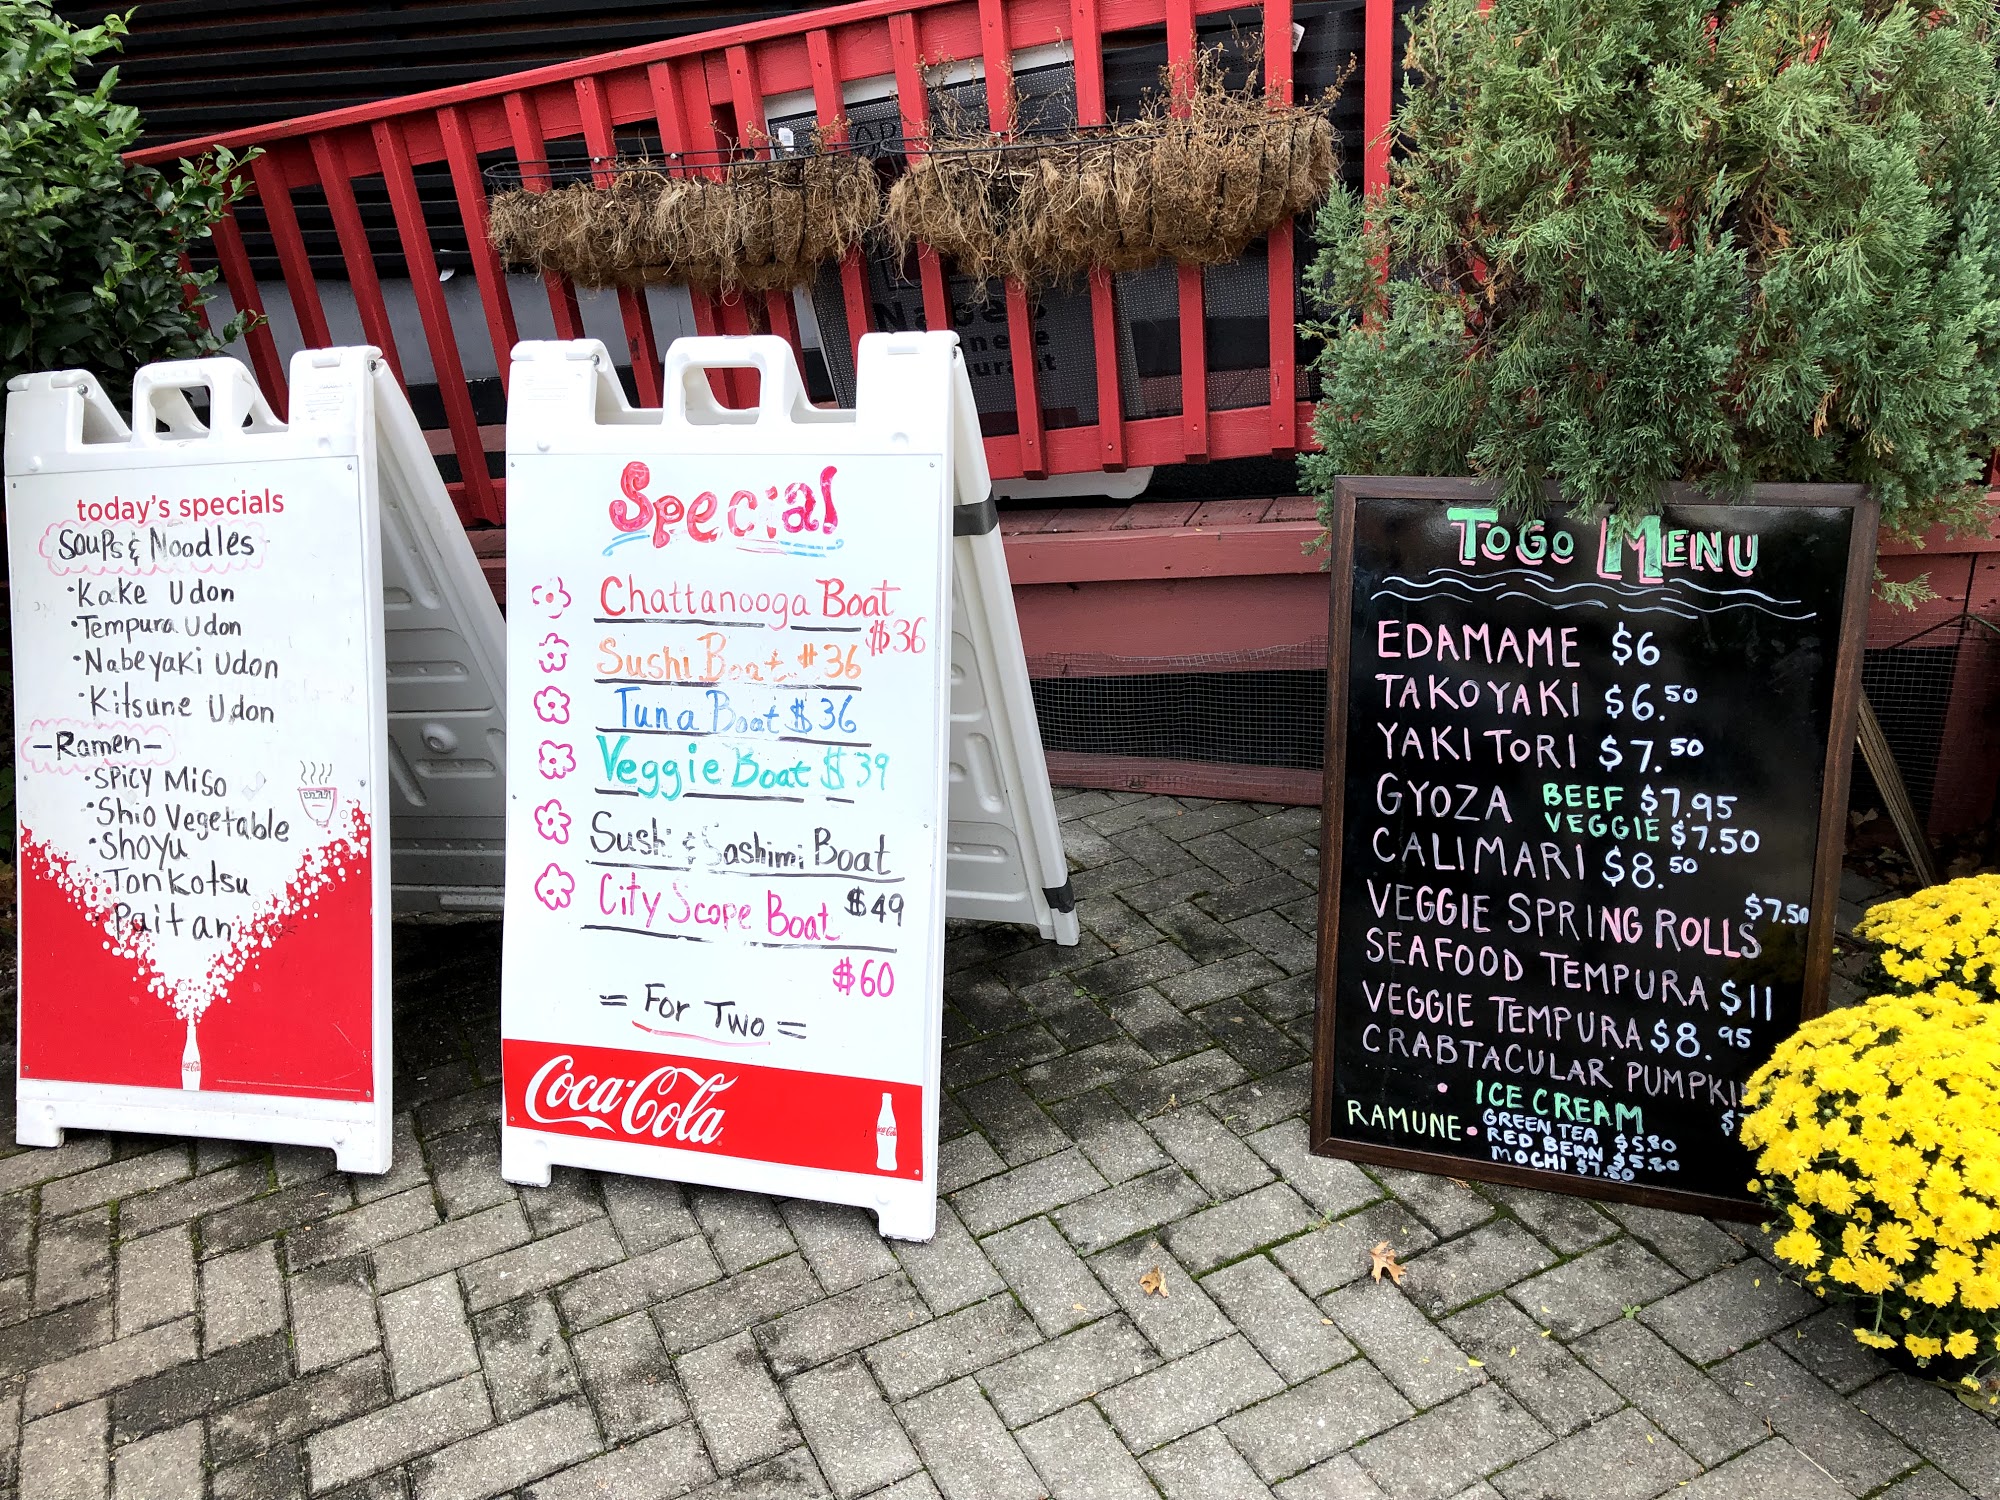 today's specials
Soups & Noodles
· Kake Udon
· Tempura Udon
· Nabeyaki Udon
· Kitsune Udon
- Ramen -
· Spicy Miso
· Shio Vegetable
· Shoyu
· Tonkotsu
· Paitan
Coca-Cola
Special
Chattanooga Boat
$36
Sushi Boat $36
Tuna Boat $36
Veggie Boat $39
Sushi & Sashimi Boat
$49
City Scope Boat
$60
= For Two =
Coca-Cola
Coca-Cola
ToGo MENU
EDAMAME $6
TAKOYAKI $6.50
YAKITORI $7.50
GYOZA BEEF $7.95
VEGGIE $7.50
CALIMARI $8.50
VEGGIE SPRING ROLLS $7.50
SEAFOOD TEMPURA $11
VEGGIE TEMPURA $8.95
CRABTACULAR PUMPKI
· ICE CREAM
RAMUNE · GREEN TEA $5.80
RED BEAN $5.80
MOCHI $7.50